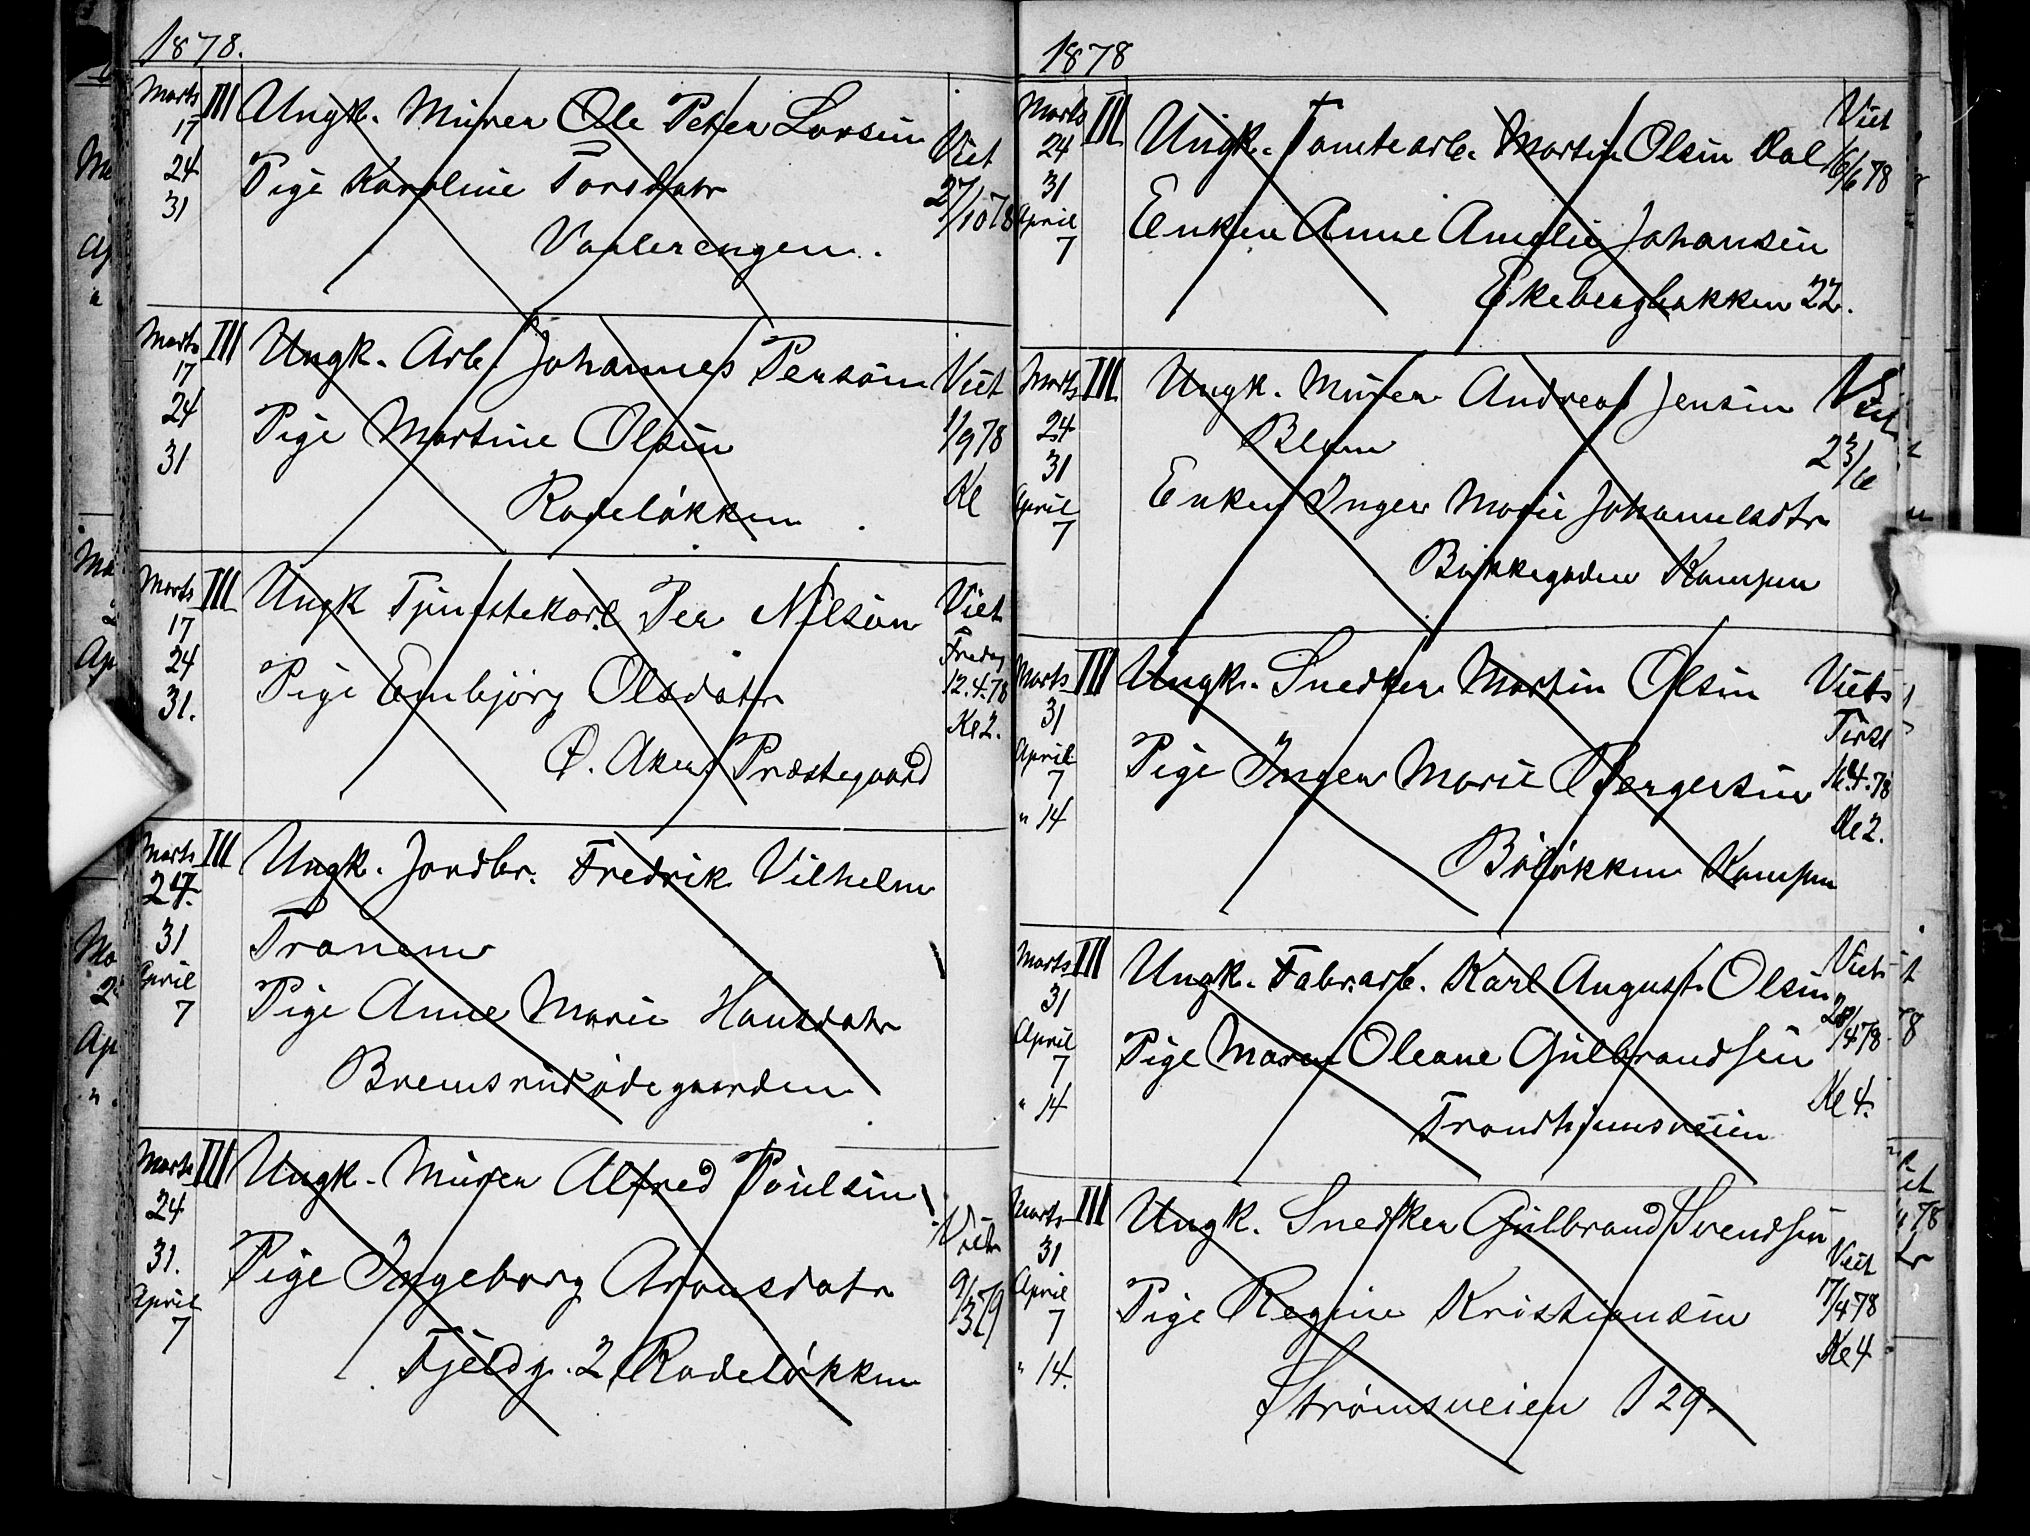 1878.
Marts III Ungk. Murer Ole Peter Larsen
17
24 Pige Karoline Torsdatr Viet
31 Vaalerengen. 27/10 78
Marts III Ungk. Arb. Johannes Persson Viet
17
24 Pige Martine Olsen 1/9 78
31 Rodeløkken Kl
Marts III Ungk Tjenstekarl Per Nilsson Viet
17 Fredag
24 Pige Embjørg Olsdatr 12.4.78
31. Kl 2.
Ø. Akers Præstegaard
Marts III Ungk. Jordbr. Fredrik Vilhelm
24.
31 Tranem
April
7 Pige Anne Marie Hansdatr
Bremsrud ødegaarden
Marts III Ungk. Murer Alfred Poulsen
24 Viet
31. Pige Ingeborg Aronsdatr 9/3 79
April
7 Fjeldg. 2 Rodeløkken
1878
Marts III Ungk. Tomtearb. Martin Olsen Dal Viet
24 16/6 78
31
April Enken Anne Amelie Johansen
7
Ekebergbakken 22.
Marts III Ungk. Murer Andreas Jensen Viet
24 Blom 23/6
31
April Enken Inger Marie Johannesdtr
7
Bøkkegaden Kampen
Marts III Ungk. Snedker Martin Olsen Viets
31 Tirsd
April Pige Inger Marie Bergersen 16.4.78
7
" 14 Kl 2.
Bøløkken Kampen
Marts III Ungk. Fabr.arb. Karl August Olsen Viet
31 28/4 78
April Pige Maren Oleane Gulbrandsen
7
" 14 Kl 4.
Trondhjemsveien
Marts III Ungk. Snedker Gulbrand Svendsen
31 Viet
April Pige Regine Kristiansen 17/4 78
7 Kl 4
" 14.
Strømsveien 129.